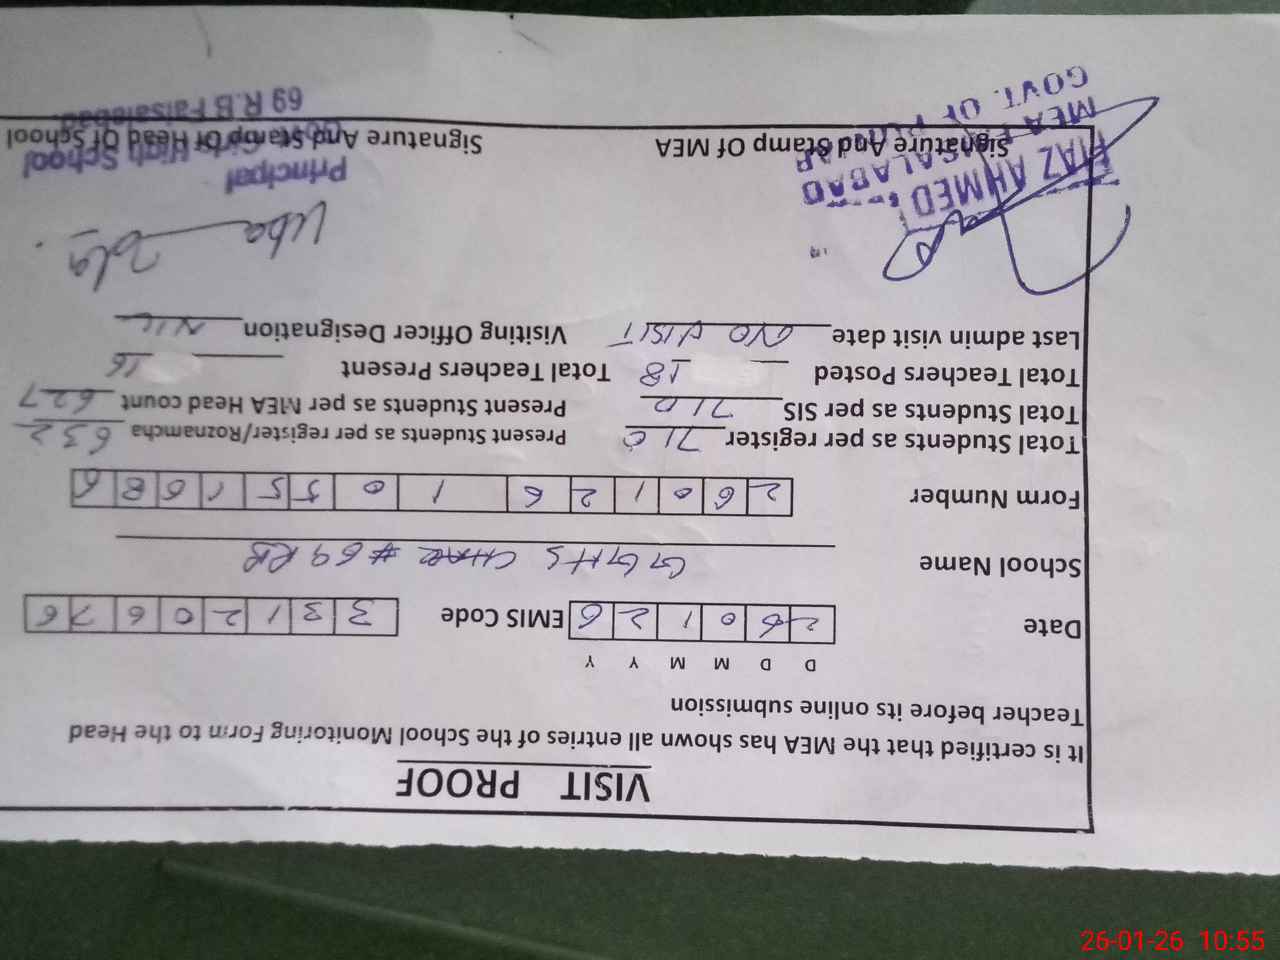 VISIT PROOF
It is certified that the MEA has shown all entries of the School Monitoring Form to the Head
Teacher before its online submission
D D M M Y Y
Date 26 01 26 EMIS Code 33120676
School Name GGHS CHAK #69 RB
Form Number 2 6 0 1 2 6 1 0 5 5 1 6 8 6
Total Students as per register 710 Present Students as per register/Roznamcha 632
Total Students as per SIS 710 Present Students as per MEA Head count 627
Total Teachers Posted 18 Total Teachers Present 16
Last admin visit date NO VISIT Visiting Officer Designation NIL
FIAZ AHMED
MEA FAISALABAD
GOVT. OF PUNJAB
Principal
Girls High School
69 R.B Faisalabad
Signature And Stamp Of MEA Signature And Stamp Of Head Of School
26-01-26 10:55